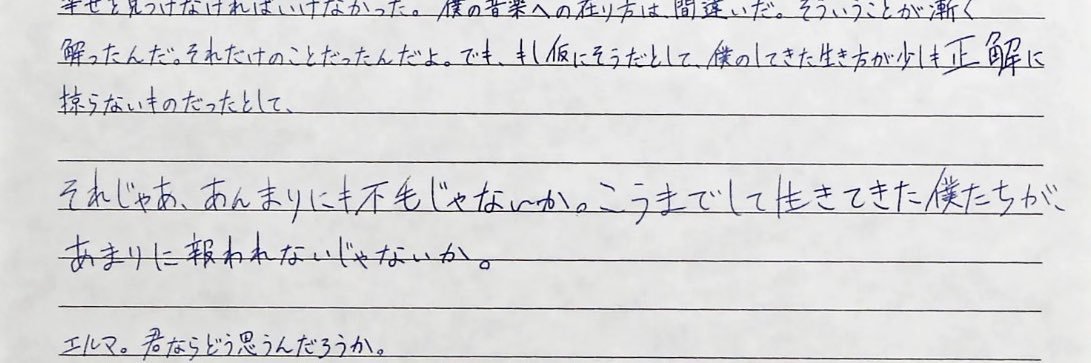 幸せを見つけなければいけなかった。僕の音楽への在り方は、間違いだ。そういうことが漸く
解ったんだ。それだけのことだったんだよ。でも、もし仮にそうだとして、僕のしてきた生き方が少しも正解に
掠らないものだったとして、
それじゃあ、あんまりにも不毛じゃないか。こうまでして生きてきた僕たちが、
あまりに報われないじゃないか。
エルマ。君ならどう思うんだろうか。